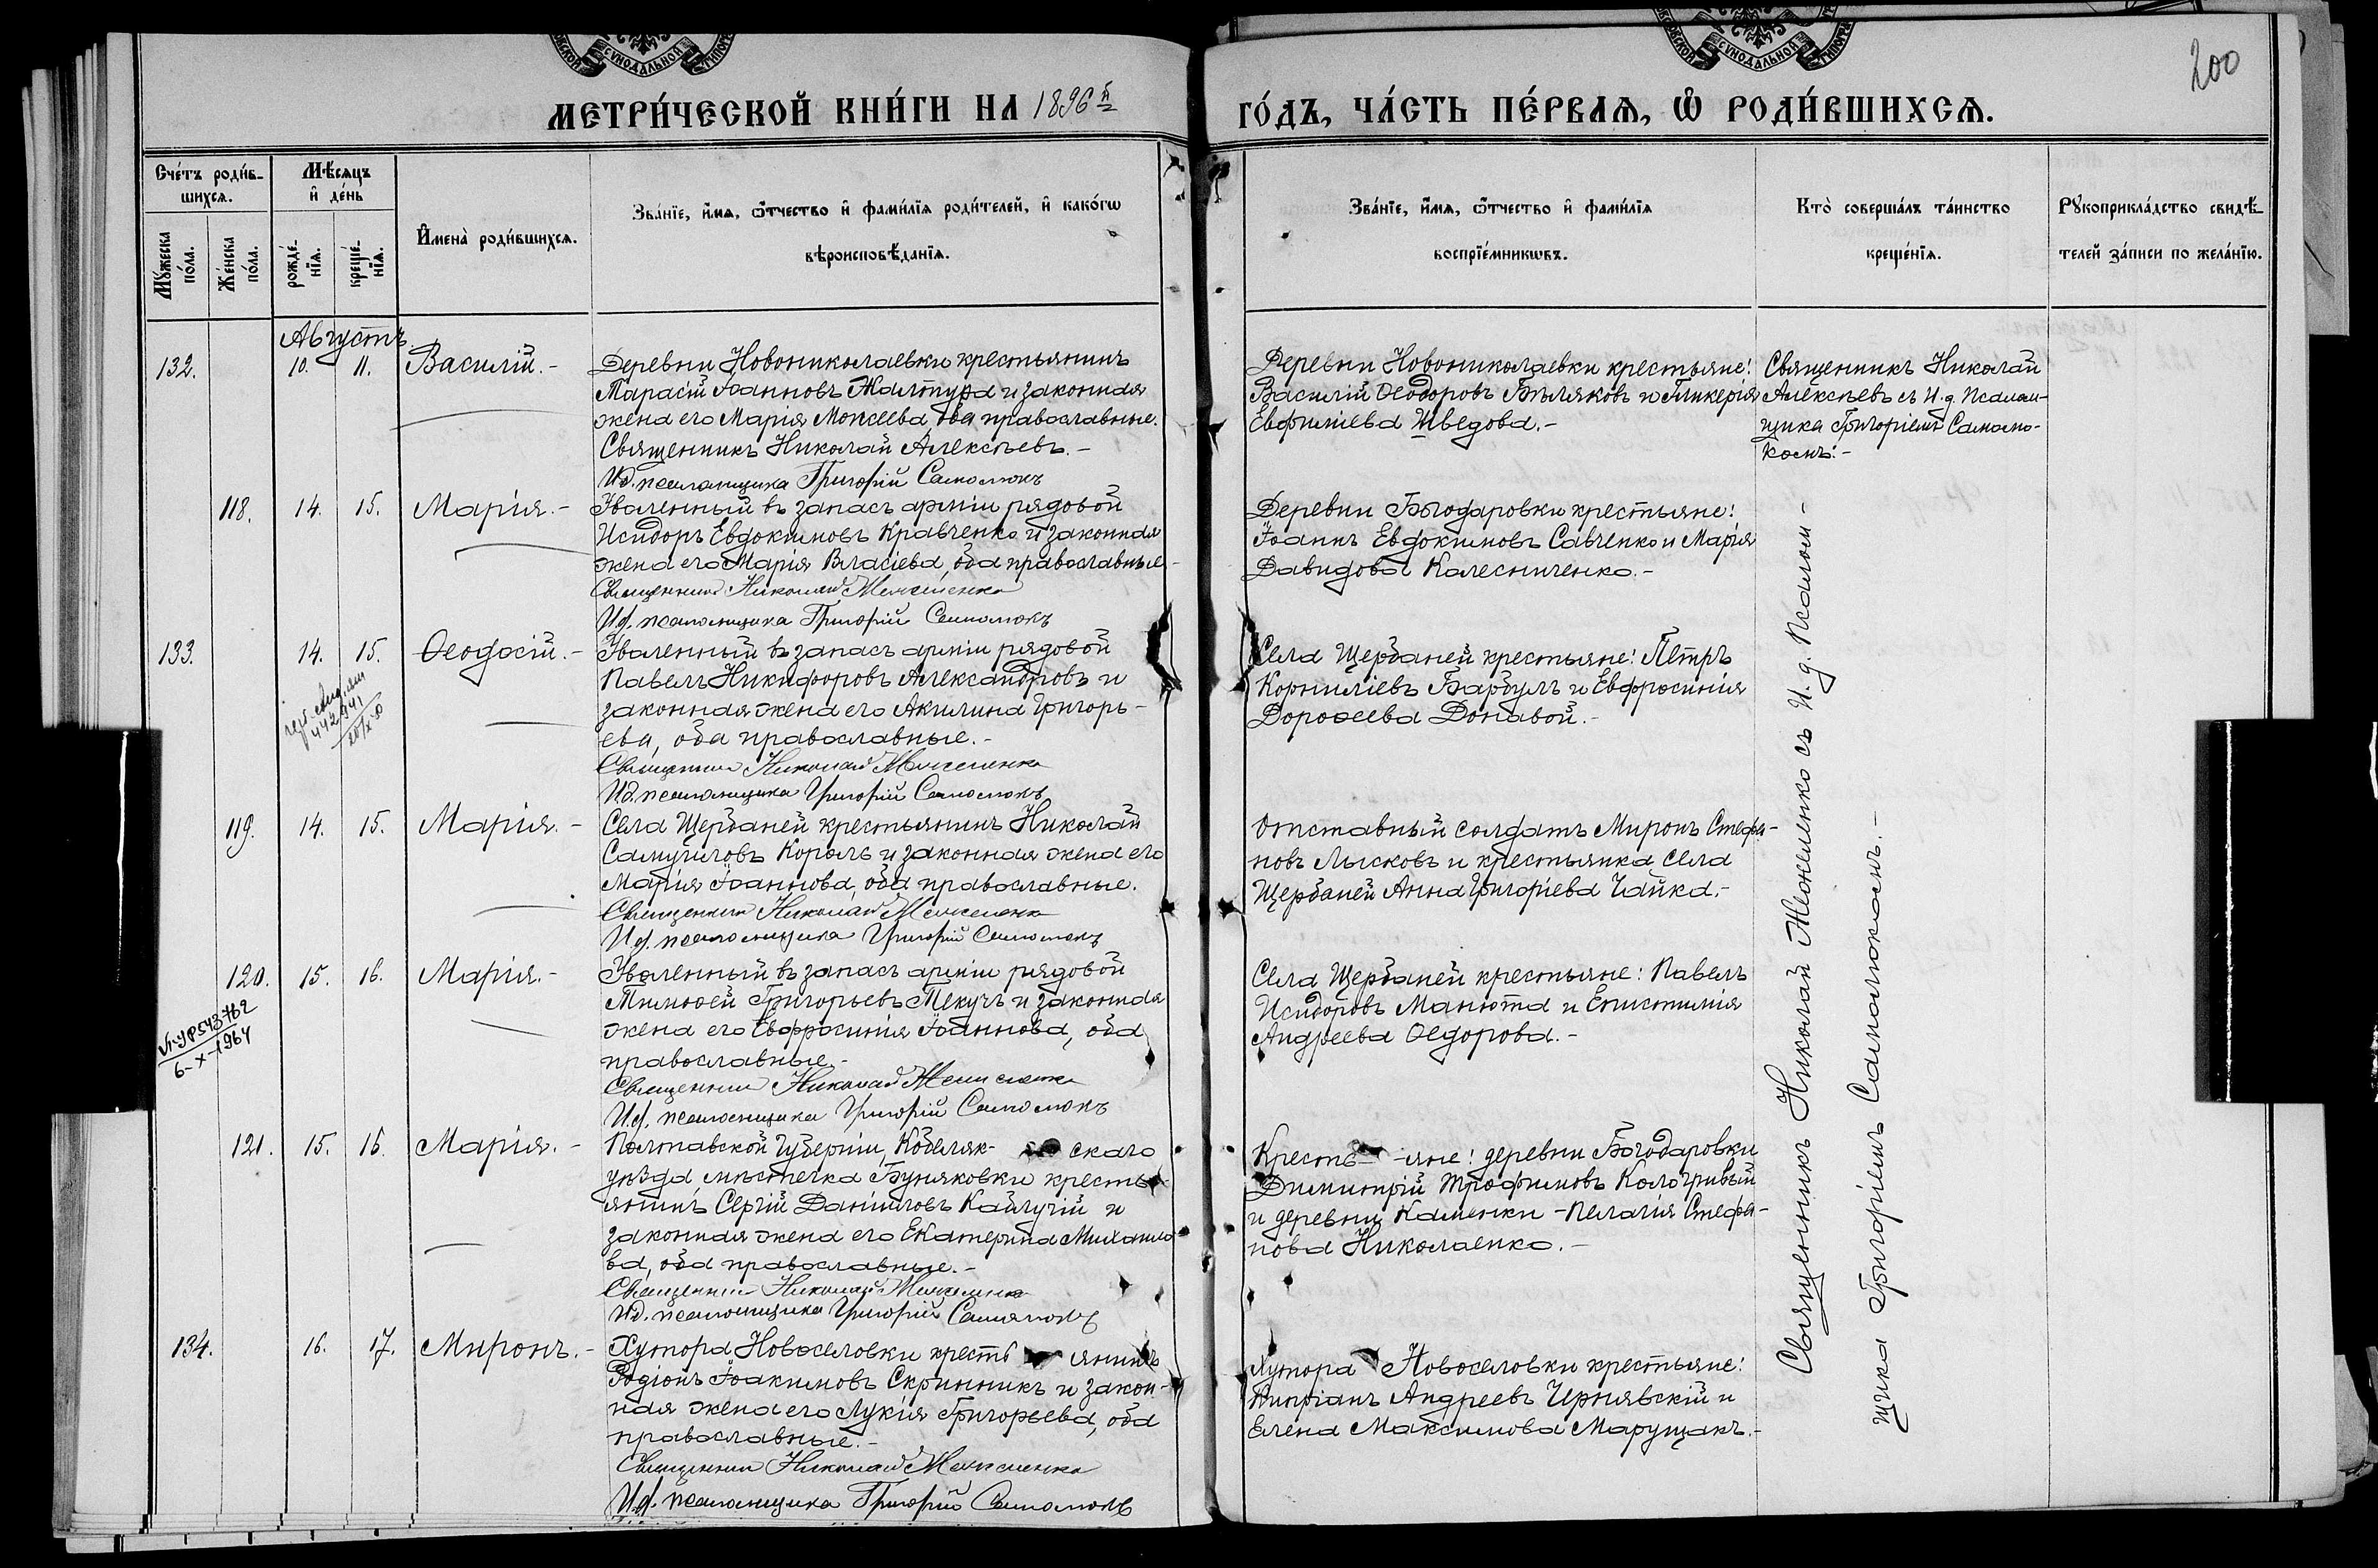 СѴНОДАЛЬНОЙ
СѴНОДАЛЬНОЙ
200
МЕТРИ́ЧЕСКОЙ КНИ́ГИ НА 1896й
ГО́ДЪ, ЧА́СТЬ ПЕ́РВАЯ, Ѡ РОДИ́ВШИХСЯ.
Сче́тъ роди́в-
шихся.
Му́жеска
по́ла.
Же́нска
по́ла.
Мѣ́сяцъ
и де́нь
рожде́-
нїя.
креще́-
нїя.
Имена̀ роди́вшихся.
Зва́нїе, и́мя, ѻ́тчество и фами́лїя роди́телей, и како́гѡ
вѣроисповѣ́данїя.
Зва́нїе, и́мя, ѻ́тчество и фами́лїя
воспрїе́мникѡвъ.
Кто̀ соверша́лъ та́инство
креще́нїя.
Рукоприкла́дство свидѣ́-
телей за́писи по жела́нїю.
Августъ.
132. 10. 11. Василій.-
Деревни Новониколаевки крестьянинъ
Тарасій Іоанновъ Жалтура и законная
жена его Марія Моисеева, оба православные.
Священникъ Николай Алексѣевъ.-
Ид. псаломщика Григорій Самолюкъ
Деревни Новониколаевки крестьяне:
Василій Ѳеодоровъ Бѣляковъ и Гликерія
Евфиміева Шведова.-
Священникъ Николай
Алексѣевъ съ И.д. псалом-
щика Григоріемъ Самолю-
комъ.-
118. 14. 15. Марія.-
Уволенный въ запасъ арміи рядовой
Исидоръ Евдокимовъ Кравченко и законная
жена его Марія Власіева, оба православные.-
Священникъ Николай
Ид. псаломщика Григорій Самолюкъ
Деревни Богодаровки крестьяне:
Іоаннъ Евдокимовъ Савченко и Марія
Давидова Колесниченко.-
133. 14. 15. Ѳеодосій.-
442941
Уволенный въ запасъ арміи рядовой
Павелъ Никифоровъ Александровъ и
законная жена его Акилина Григорь-
ева, оба православные.-
Священникъ Николай
Ид. псаломщика Григорій Самолюкъ
Села Щербаней крестьяне: Петръ
Корниліевъ Барбулъ и Евфросинія
Дороѳеева Донавой.-
119. 14. 15. Марія.-
Села Щербаней крестьянинъ Николай
Самуиловъ Король и законная жена его
Марія Іоаннова, оба православные.
Священникъ Николай
Ид. псаломщика Григорій Самолюкъ
Отставный солдатъ Миронъ Стефа-
новъ Лысковъ и крестьянка села
Щербаней Анна Григоріева Чайка.-
120. 15. 16. Марія.-
543762
6-X-1964
Уволенный въ запасъ арміи рядовой
Тимоѳей Григорьевъ Текучъ и законная
жена его Евфросинія Іоаннова, оба
православные.-
Священникъ Николай
Ид. псаломщика Григорій Самолюкъ
Села Щербаней крестьяне: Павелъ
Исидоровъ Манюта и Епистимія
Андреева Ѳедорова.-
121. 15. 16. Марія.-
Полтавской Губерніи, Кобеляк- скаго
уѣзда мѣстечка Буняковки кресть-
янинъ Сергій Даниловъ Кайлучій и
законная жена его Екатерина Михаило-
ва, оба православные.-
Священникъ Николай
Ид. псаломщика Григорій Самолюкъ
Кресть- -яне: деревни Богодаровки
Димитрій Трофимовъ Кологривый
и деревни Каменки - Пелагія Стефа-
нова Николаенко.-
134. 16. 17. Миронъ.-
Хутора Новоселовки кресть янинъ
Родіонъ Іоакимовъ Скринникъ и закон-
ная жена его Лукія Григорьева, оба
православные.-
Священникъ Николай
Ид. псаломщика Григорій Самолюкъ
Хутора Новоселовки крестьяне:
Кипріанъ Андреевъ Чернявскій и
Елена Максимова Марущакъ.-
Священникъ Николай съ И.д. Псалом-
щика Григоріемъ Самолюкомъ.-